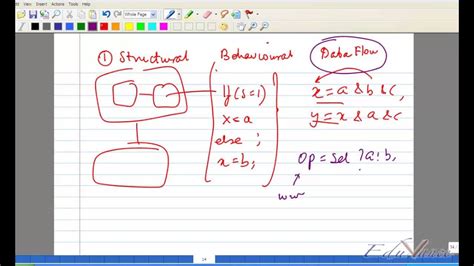 Insert Actions Tools Help
Whole Page
① Structural
Behavioural
y(s=1)
x=a
else ;
x=b;
Data Flow
x=a&b&c,
y=x&a&c
op=sel ?a:b,
wire
14
EduVance